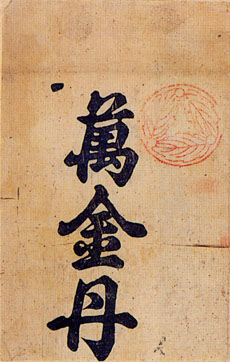 萬金丹